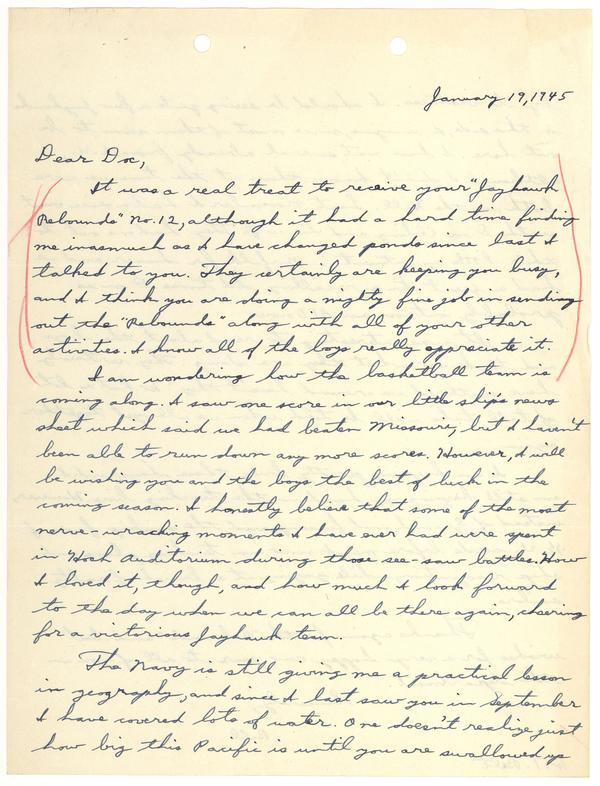 January 19, 1945
Dear Doc,
It was a real treat to receive your "Jayhawk
Rebounds" No. 12, although it had a hard time finding
me inasmuch as I have changed ponds since last I
talked to you. They certainly are keeping you busy,
and I think you are doing a mighty fine job in sending
out the "Rebounds" along with all of your other
activities. I know all of the boys really appreciate it.
I am wondering how the basketball team is
coming along. I saw one score in our little ship's news
sheet which said we had beaten Missouri, but I haven't
been able to run down any more scores. However, I will
be wishing you and the boys the best of luck in the
coming season. I honestly believe that some of the most
nerve-wracking moments I have ever had were spent
in Hoch Auditorium during those see-saw battles. How
I loved it, though, and how much I look forward
to the day when we can all be there again, cheering
for a victorious Jayhawk team.
The Navy is still giving me a practical lesson
in geography, and since I last saw you in September
I have covered lots of water. One doesn't realize just
how big this Pacific is until you are swallowed up